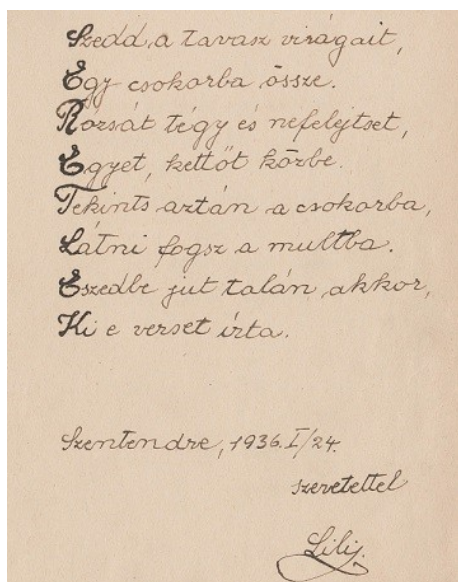 Szedd a tavasz virágait,
Egy csokorba össze.
Rózsát tégy és nefelejtset,
Egyet, kettőt közbe.
Tekints aztán a csokorba,
Látni fogsz a multba.
Eszedbe jut talán akkor,
Ki e verset írta.
Szentendre, 1936. I/24.
szeretettel
Lilij.